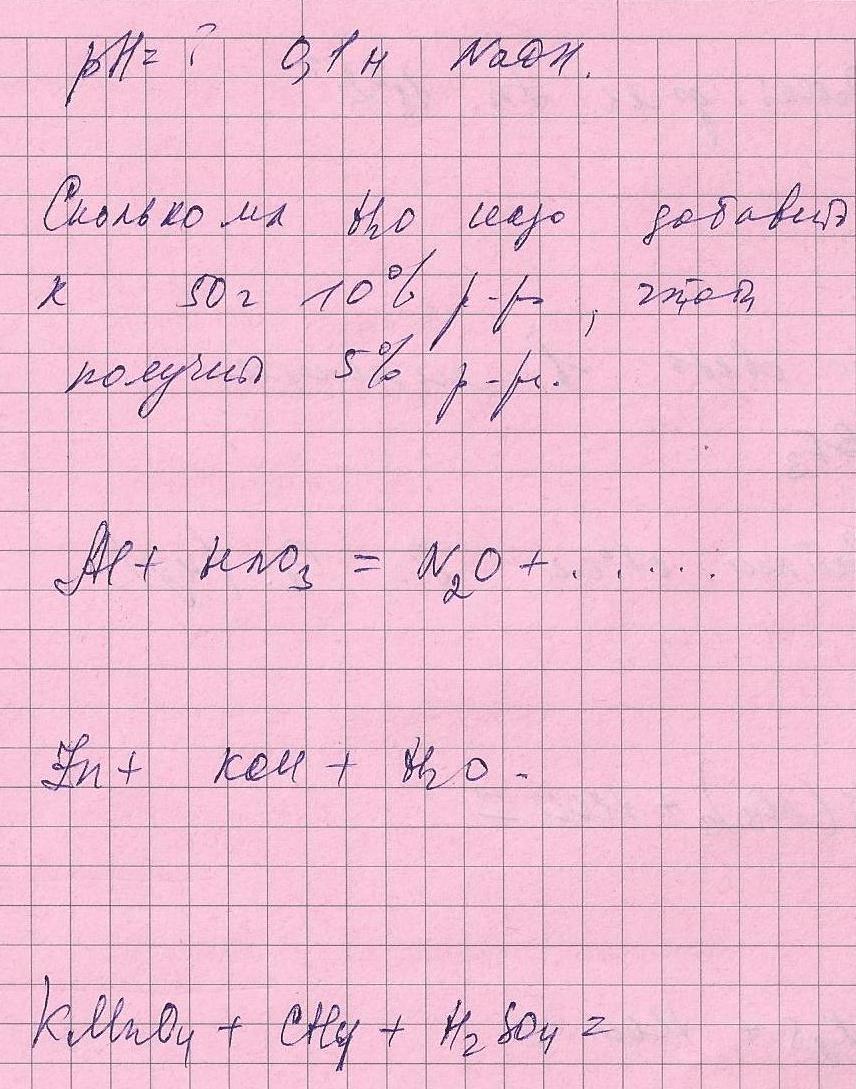 pH = ? 0,1 н NaOH.
Сколько мл H2O надо добавить
к 50 г 10% р-ра, чтобы
получить 5% р-р.
Al + HNO3 = N2O + . . . . .
Zn + KOH + H2O -
KMnO4 + CH4 + H2SO4 =